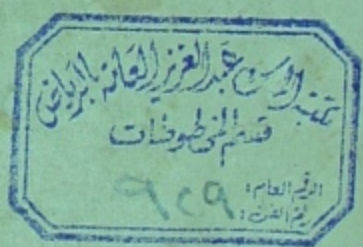 مكتبة الملك عبد العزيز العامة بالرياض
قسم المخطوطات
الرقم العام:
٩٢٩
رقم الفن: